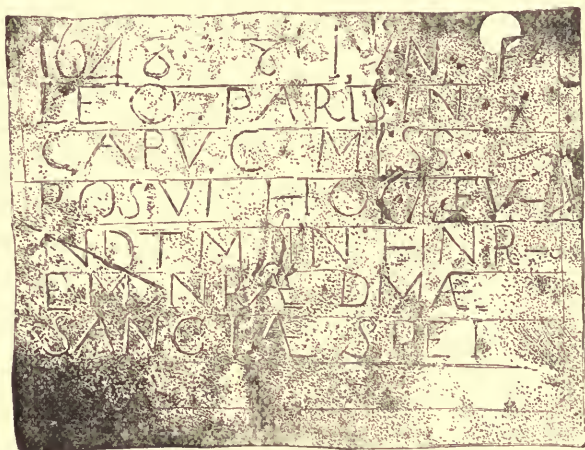 1648 · 8 · IVN · F ·
LEO · PARISIN ·
CAPVC · MISS ·
POSVI HOC FV-
NDTM IN HNR-
EM NRÆ DMÆ
SANCTÆ SPEI